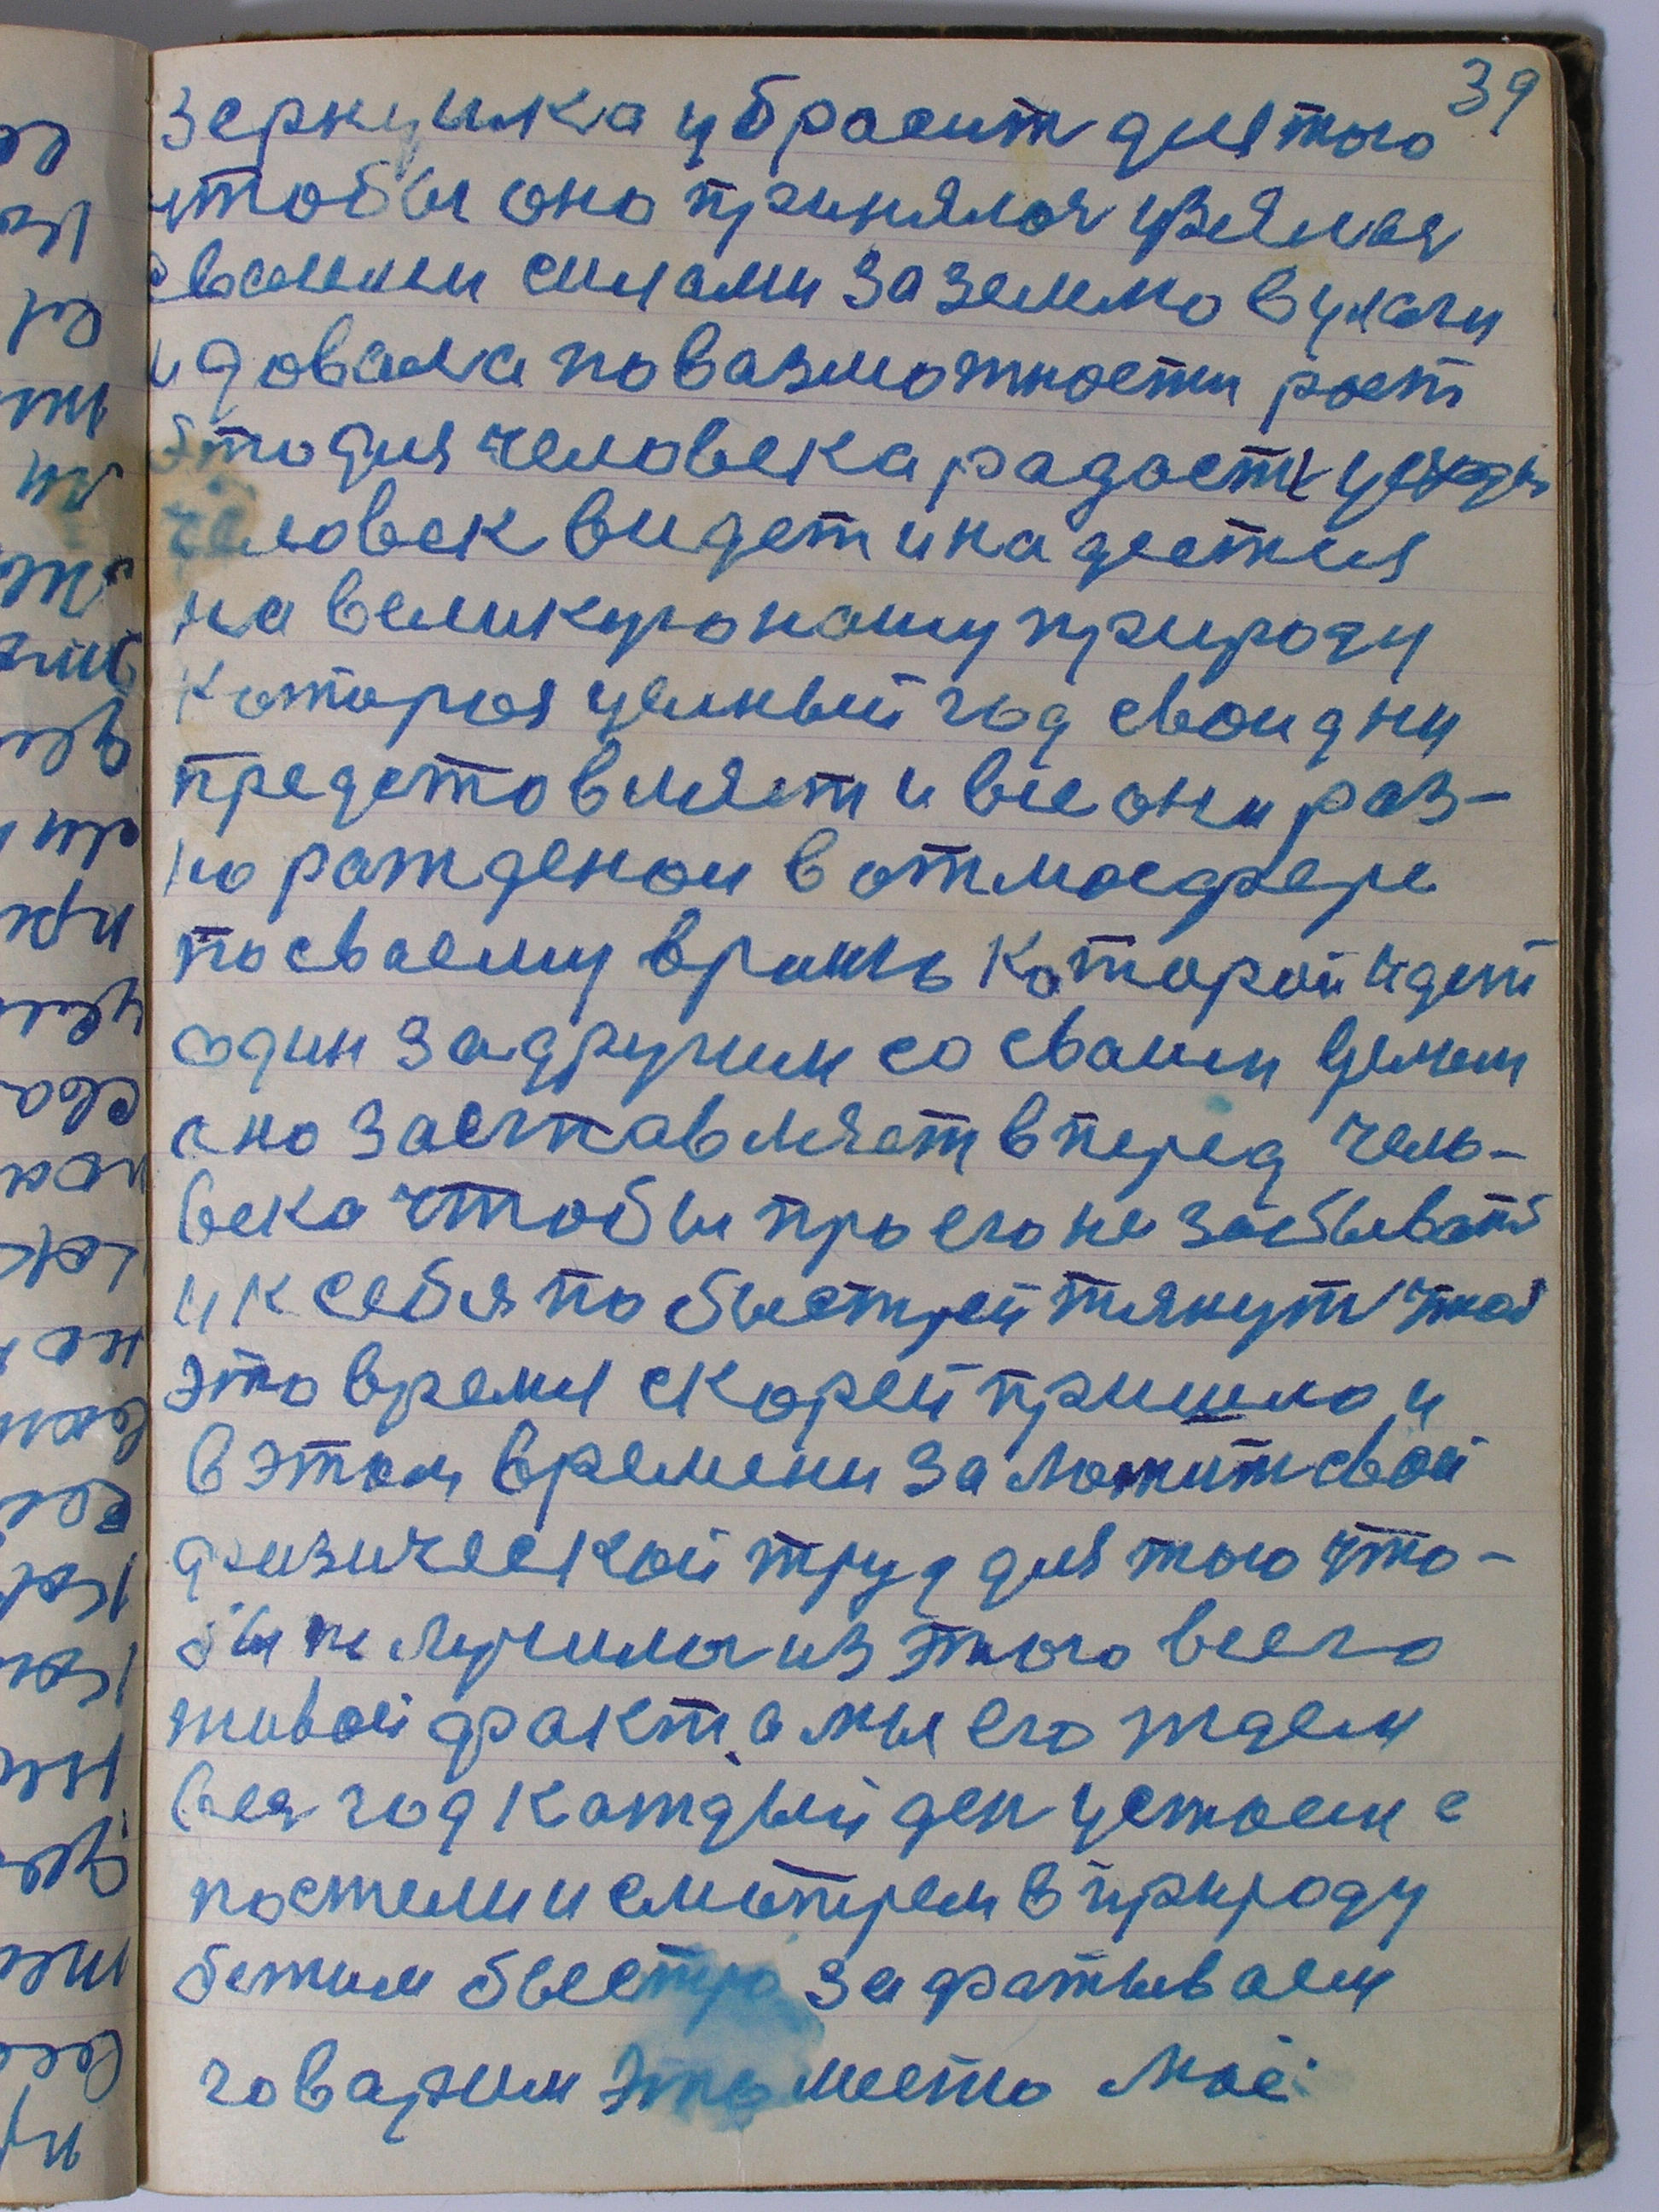 39
зернушка убросит для того
чтобы оно принялся узялся
своими силами за землю вухаги
и довала по вазможности рост
Это для человека радость
человек видет и надеется
на великую нашу природу
которая целный год свои дни
предстовляет и все они раз-
но ражденои в отмосфере
посваему вримь каторой идет
один за другим со сваим
оно заставляет вперед чело-
века чтобы про его не забывать
и к себя по быстрей тянут чтоб
это время скорей пришло и
в этом времени заложит свой
физической труд для того что-
бы получилось из этого всего
живой факт а мы его ждем
вся год каждый ден устаем с
постели и смотрем в природу
бежим быстро зафатываем
говарим это место моё